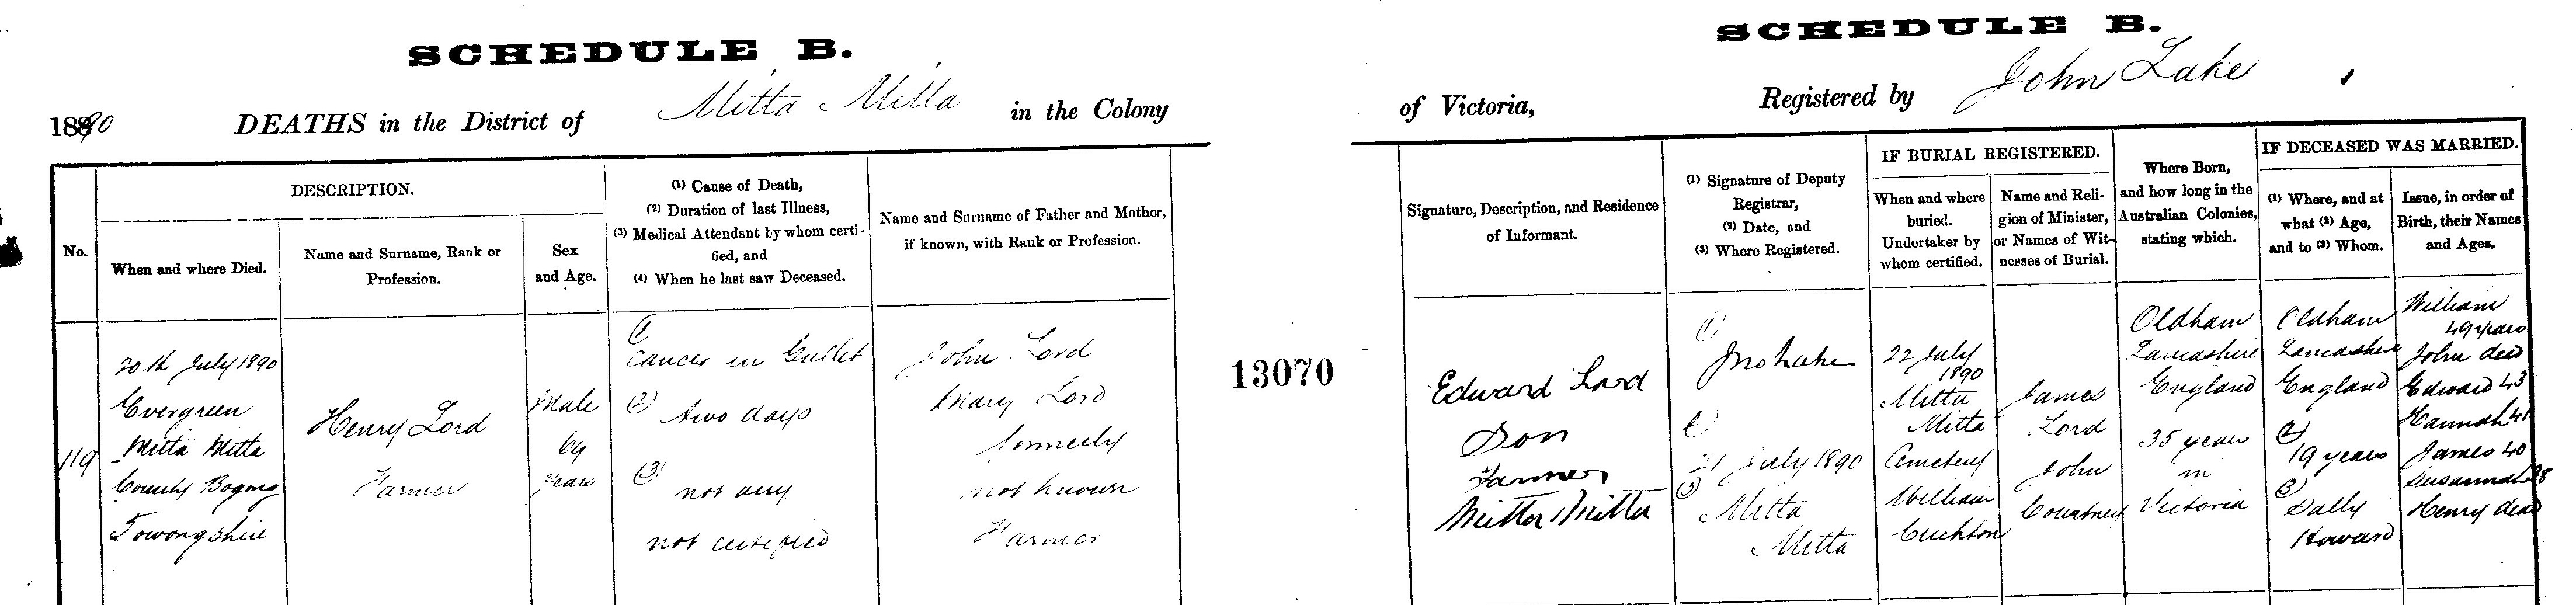 SCHEDULE B.
1890 DEATHS in the District of Mitta Mitta in the Colony
No.
DESCRIPTION.
When and where Died.
Name and Surname, Rank or
Profession.
Sex
and Age.
(1) Cause of Death,
(2) Duration of last Illness,
(3) Medical Attendant by whom certi-
fied, and
(4) When he last saw Deceased.
Name and Surname of Father and Mother,
if known, with Rank or Profession.
119
20th July 1890
Evergreen
Mitta Mitta
County Bogong
Towongshire
Henry Lord
Farmer
Male
69
years
(1)
Cancer in Gullet
(2)
two days
(3)
not any
not certified
John Lord
Mary Lord
formerly
not known
Farmer
13070
SCHEDULE B.
of Victoria, Registered by John Lake
Signature, Description, and Residence
of Informant.
(1) Signature of Deputy
Registrar,
(2) Date, and
(3) Where Registered.
IF BURIAL REGISTERED.
When and where
buried.
Undertaker by
whom certified.
Name and Reli-
gion of Minister,
or Names of Wit-
nesses of Burial.
Where Born,
and how long in the
Australian Colonies,
stating which.
IF DECEASED WAS MARRIED.
(1) Where, and at
what (2) Age,
and to (3) Whom.
Issue, in order of
Birth, their Names
and Ages.
Edward Lord
Son
Farmer
Mitta Mitta
(1)
Jno Lake
(2)
21 July 1890
(3)
Mitta
Mitta
22 July
1890
Mitta
Mitta
Cemetery
William
Crichton
James
Lord
John
Courtney
Oldham
Lancashire
England
35 years
in
Victoria
Oldham
Lancashire
England
(2)
19 years
(3)
Sally
Howard
William
49 years
John dead
Edward 43
Hannah 41
James 40
Susannah 38
Henry dead